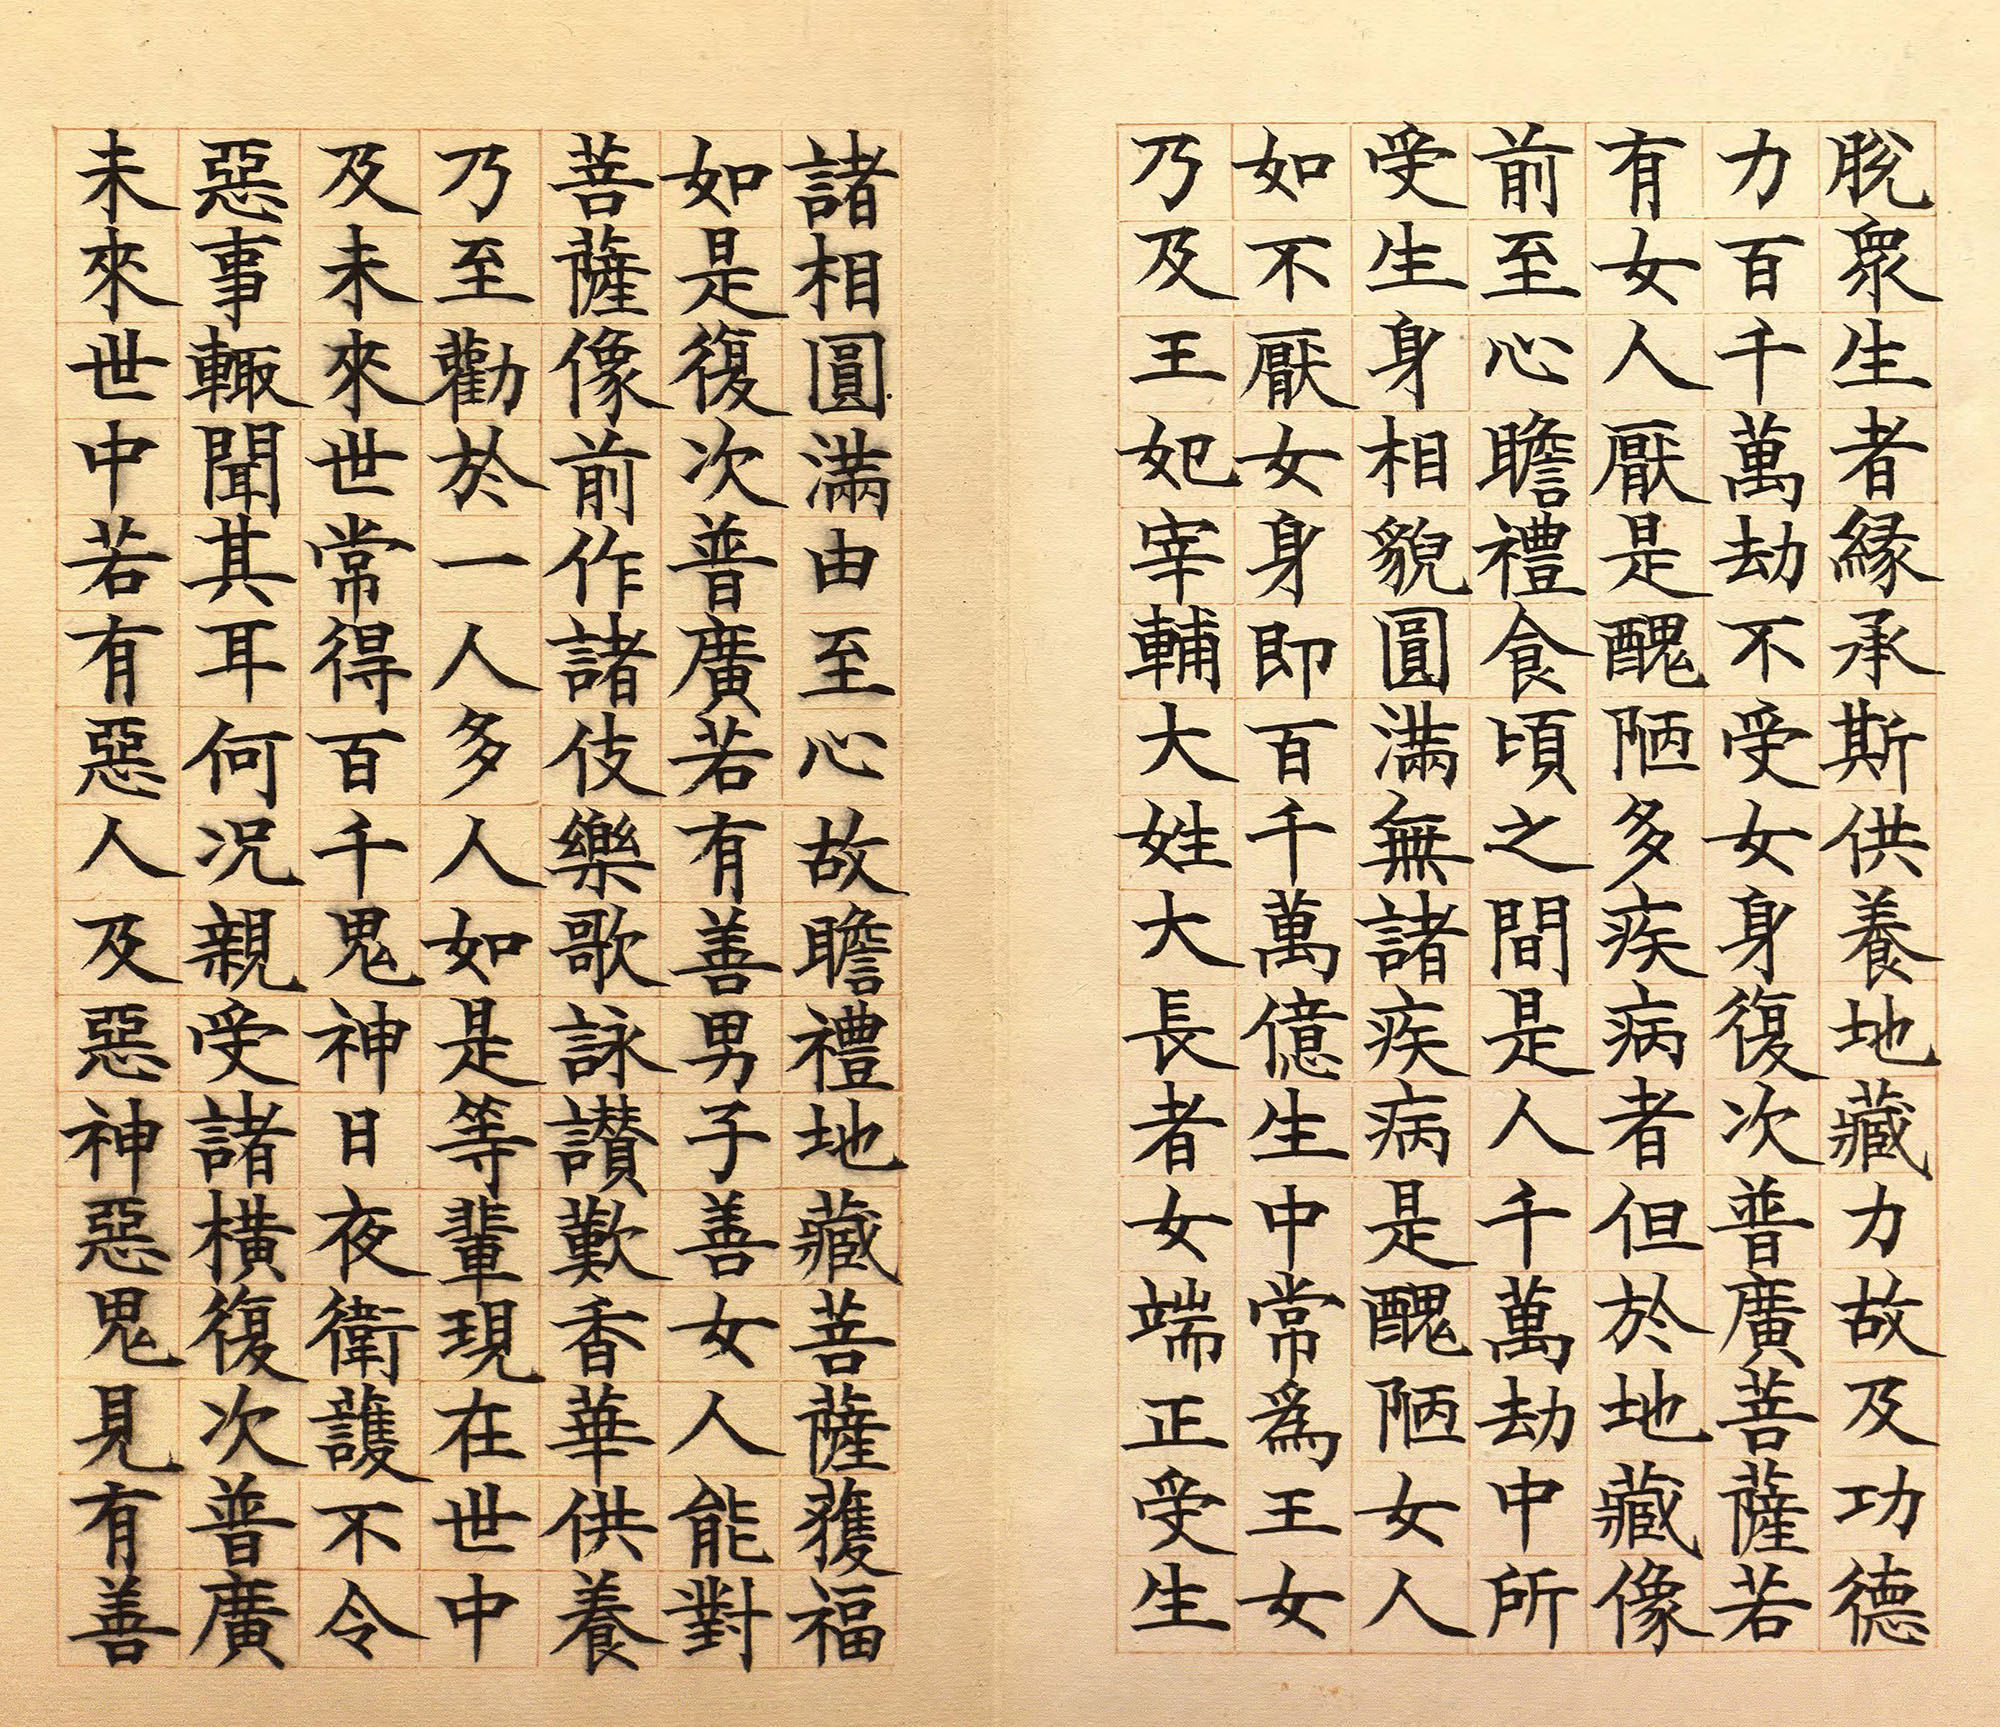 脫眾生者緣承斯供養地藏力故及功德
力百千萬劫不受女身復次普廣菩薩若
有女人厭是醜陋多疾病者但於地藏像
前至心瞻禮食頃之間是人千萬劫中所
受生身相貌圓滿無諸疾病是醜陋女人
如不厭女身即百千萬億生中常為王女
乃及王妃宰輔大姓大長者女端正受生
諸相圓滿由至心故瞻禮地藏菩薩獲福
如是復次普廣若有善男子善女人能對
菩薩像前作諸伎樂歌詠讚歎香華供養
乃至勸於一人多人如是等輩現在世中
及未來世常得百千鬼神日夜衛護不令
惡事輙聞其耳何況親受諸橫復次普廣
未來世中若有惡人及惡神惡鬼見有善